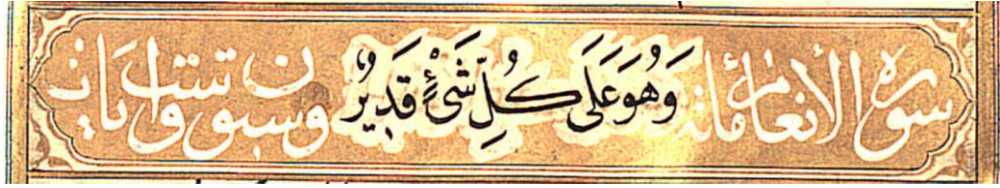 سورة الأنعام مائة وَهُوَ عَلَى كُلِّ شَىْءٍ قَدِيرٌ وستون وست آيات